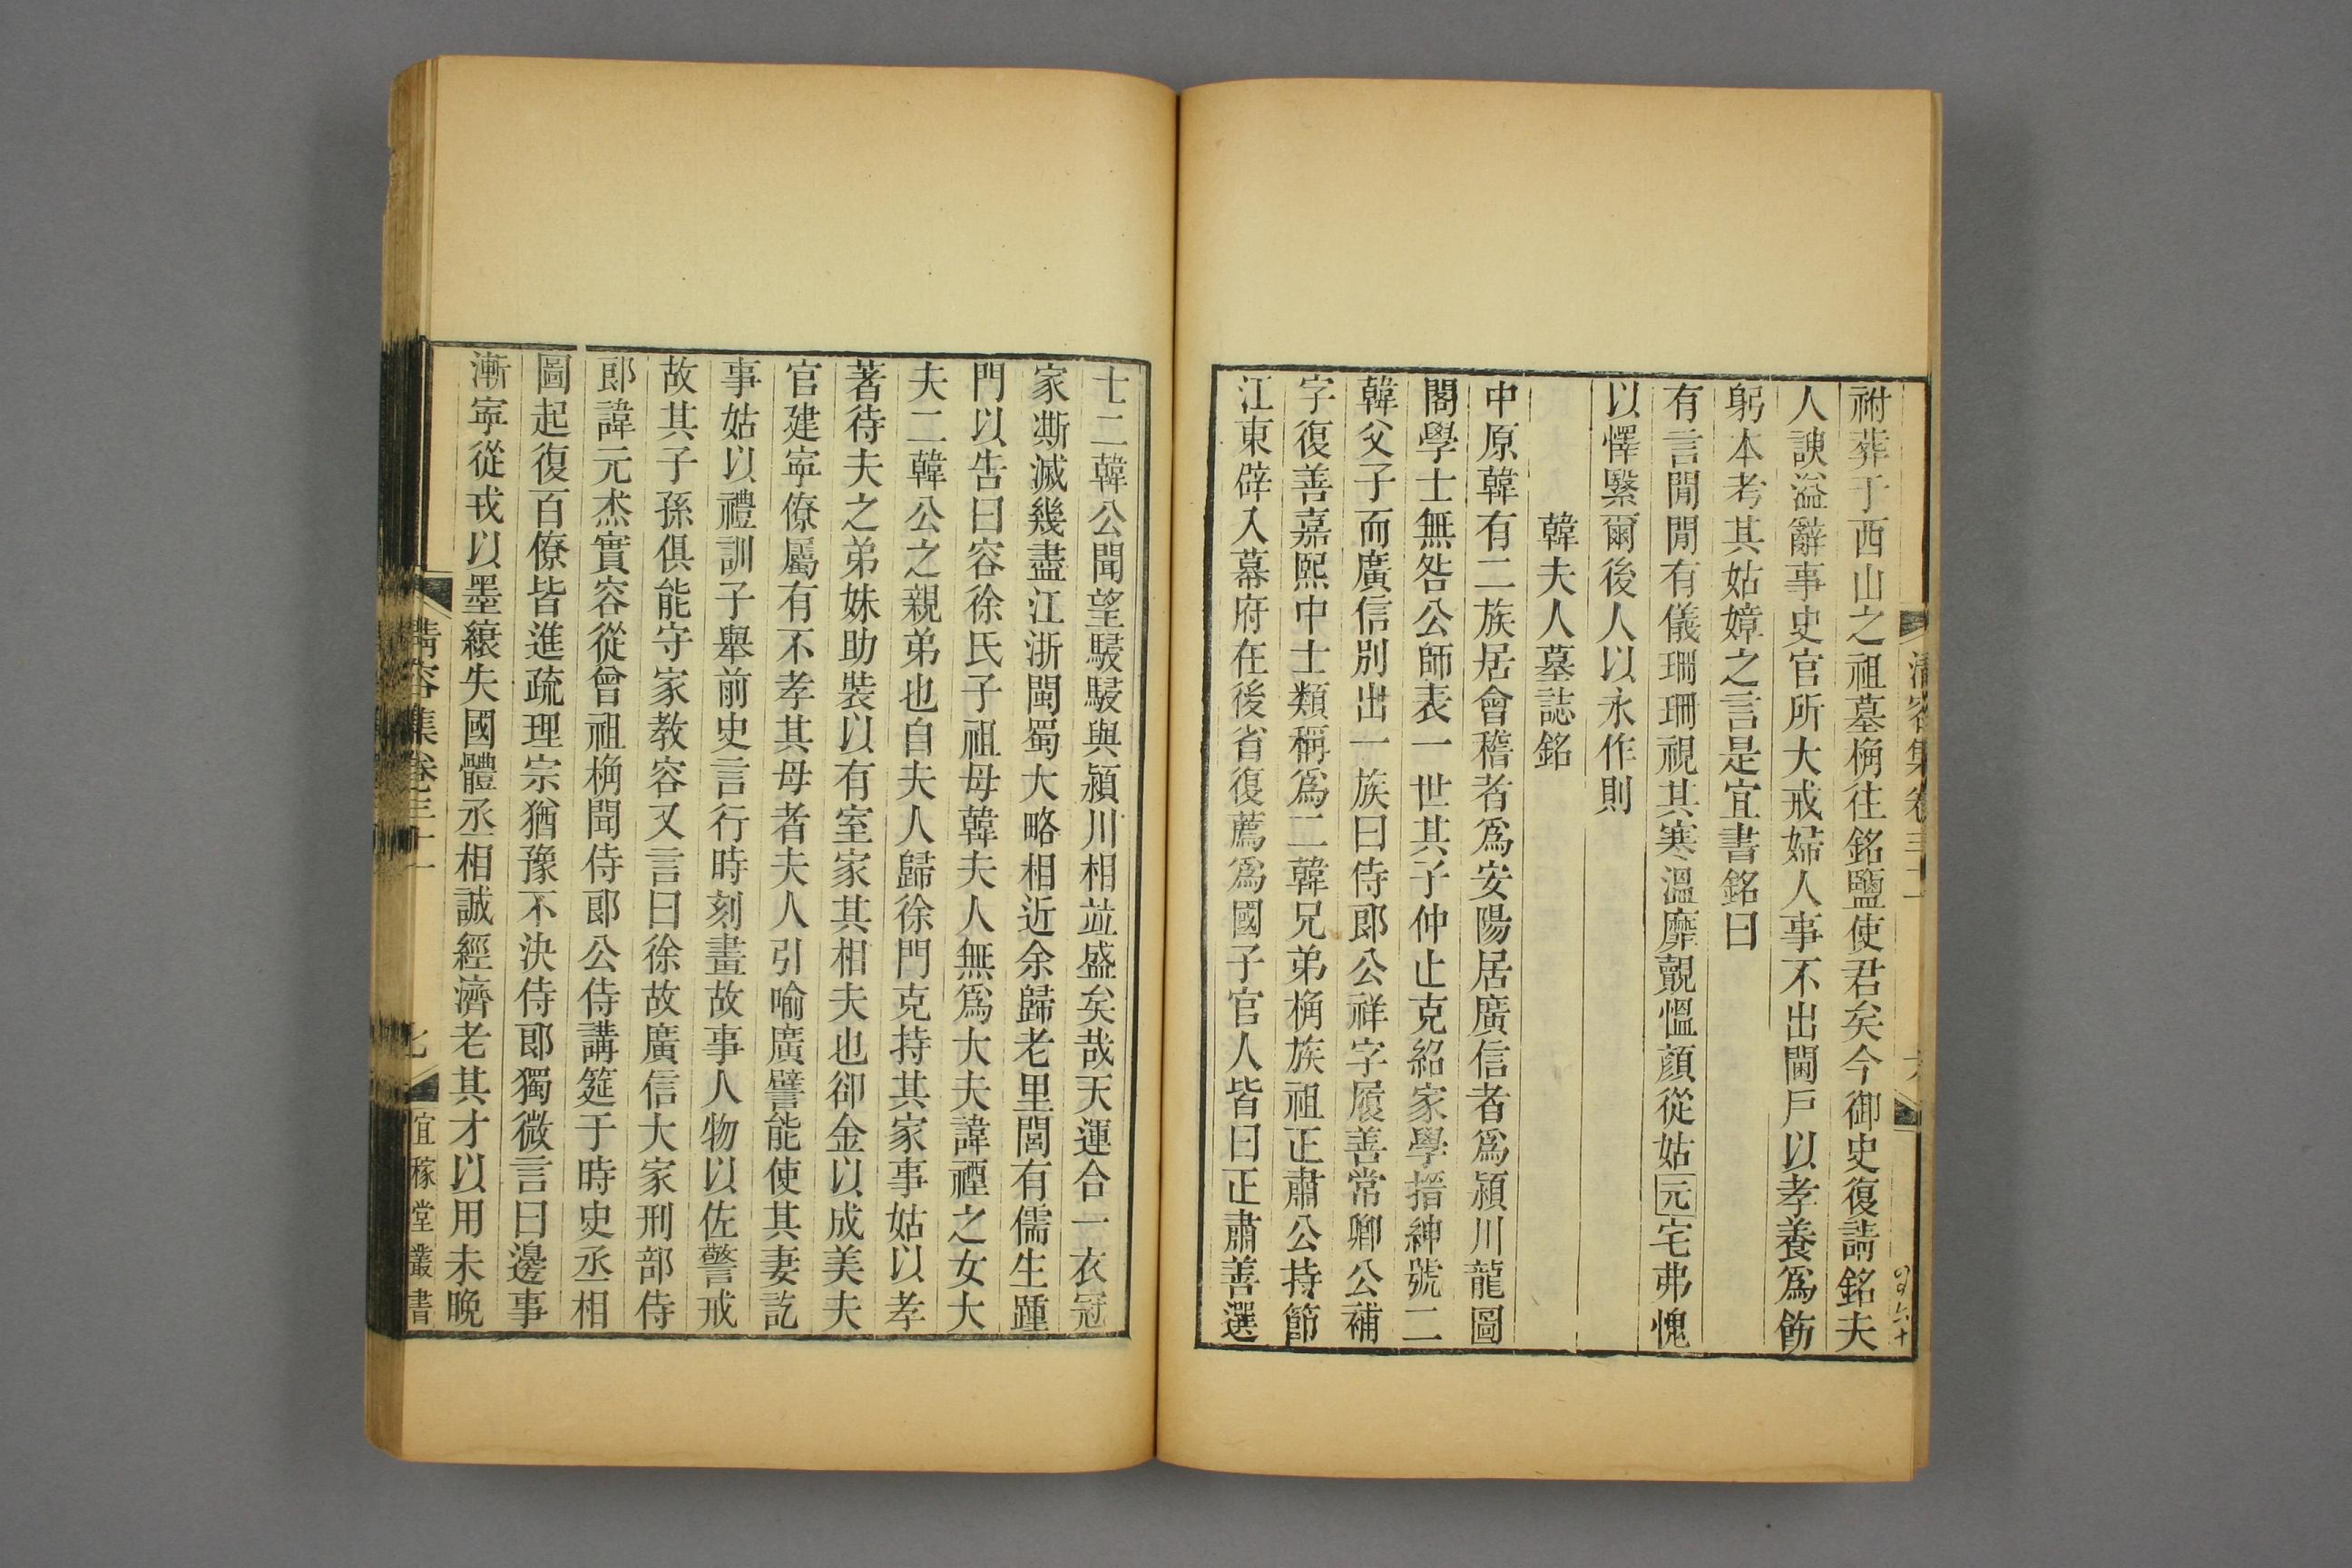 祔葬于西山之祖墓桷往銘鹽使君矣今御史復請銘夫
人諛溢辭事史官所大戒婦人事不出閫戶以孝養爲飭
躬本考其姑嫜之言是宜書銘曰
有言閒閒有儀珊珊視其寒溫靡覿慍顔從姑元宅弗愧
以懌繄爾後人以永作則
韓夫人墓誌銘
中原韓有二族居會稽者爲安陽居廣信者爲潁川龍圖
閣學士無咎公師表一世其子仲止克紹家學搢紳號二
韓父子而廣信別出一族曰侍郎公祥字履善常卿公補
字復善嘉熙中士類稱爲二韓兄弟桷族祖正肅公持節
江東辟入幕府在後省復薦爲國子官人皆曰正肅善選
士二韓公聞望駸駸與潁川相竝盛矣哉天運合一衣冠
家澌滅幾盡江浙閩蜀大略相近余歸老里閭有儒生踵
門以告曰容徐氏子祖母韓夫人無爲大夫諱禋之女大
夫二韓公之親弟也自夫人歸徐門克持其家事姑以孝
著待夫之弟妹助裝以有室家其相夫也卻金以成美夫
官建寧僚屬有不孝其母者夫人引喻廣譬能使其妻訖
事姑以禮訓子舉前史言行時刻畫故事人物以佐警戒
故其子孫俱能守家教容又言曰徐故廣信大家刑部侍
郎諱元杰實容從曾祖桷聞侍郎公侍講筵于時史丞相
圖起復百僚皆進疏理宗猶豫不決侍郎獨微言曰邊事
漸寧從戎以墨縗失國體丞相誠經濟老其才以用未晚
清容集卷三十一
七
宜稼堂叢書